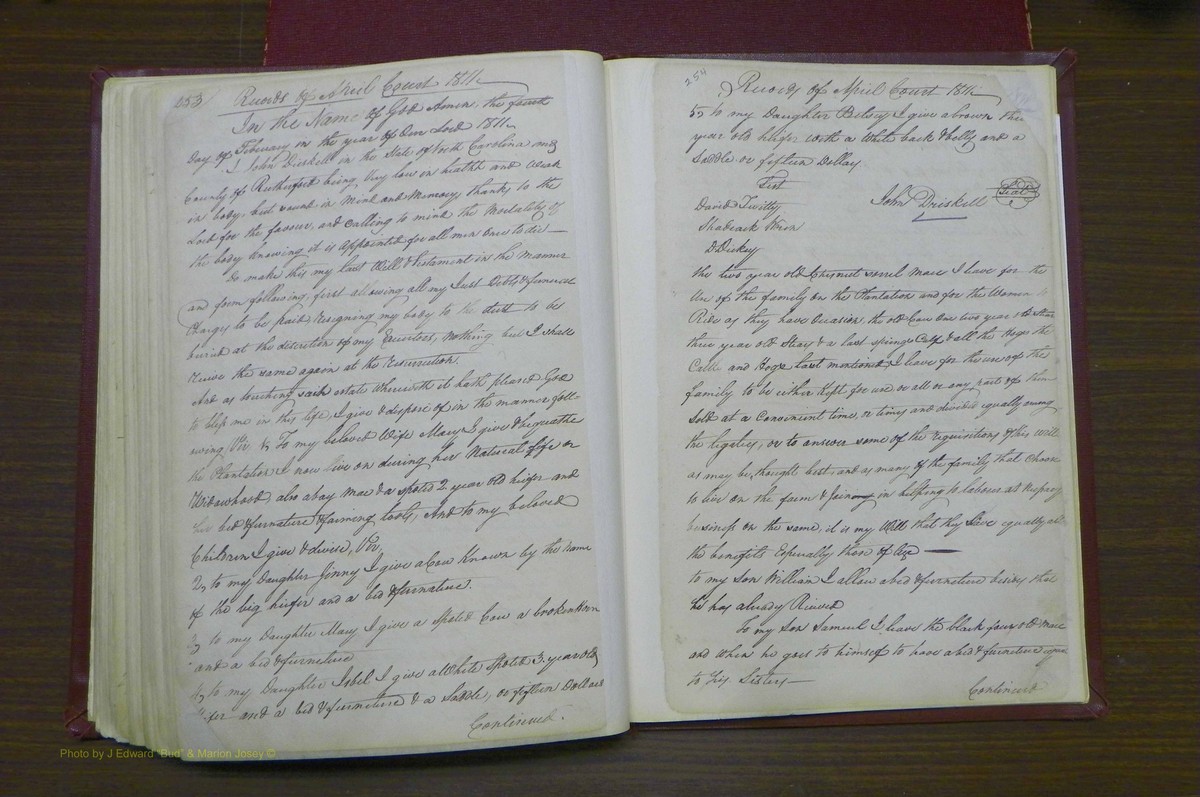 253 Records of April Court 1811
In the Name of God Amen, the fourth
day of February in the year of Our Lord 1811
I John Driskell in the State of North Carolina and
County of Rutherford being Very low in health and weak
in body, but sound in Mind and Memory, thanks to the
Lord for the favour, and Calling to mind the Mortality of
the body knowing it is appointed for all men Once to die—
do make this my Last Will & Testament in the Manner
and form following, first allowing all my Just Debts & funeral
Charges to be paid, resigning my body to the dust to be
buried at the discretion of my Executors, nothing but I shall
receive the same again at the Resurrection.
And as touching such estate Wherewith it hath pleased God
to bless me in this life, I give & dispose of in the manner foll-
owing Viz. To my beloved Wife Mary I give & bequeathe
the Plantation I now live on during her Natural life or
Widowhood, also a bay Mare & a spoted 2 year old heifer and
her bed & furnature & farming tools, And to my beloved
Children I give & devise, Viz.
2, to my Daughter Jinny I give a Cow Known by the name
of the big heifer and a bed & furnature.
3, to my Daughter Mary I give a spoted Cow a broken Horn
and a bed & furnature
4, to my Daughter Isbel I give a White spoted 3 year old
and a bed & furnature & a Saddle, or fifteen Dollars
Continued.
254 Records of April Court 1811
5, to my Daughter Betsey I give a brown three
year old heifer with a White back & belly and a
Saddle or fifteen Dollars
Test
David Twitty
John Driskell Seal
Shadrack
D Dickey
the two year old Chesnut sorrel Mare I leave for the
Use of the family on the Plantation and for the Women to
Ride as they have Occasion the old Cow One two year old Steer
three year old Stear & a last springs Calf & all the Hogs the
Cattle and Hogs last mentioned I leave for the use of the
family to be either Kept for use or all or any part of them
Sold at a Convinient time, or times, and divided equally among
the legatees, or to answer some of the requisitions of this will
as may be thought best, and as many of the family that choose
to live on the farm & joining in helping to labour at
business on the same, it is my Will that they have equally all
the benefits Especially those of Age —
to my son William I allow a bed & furnature besides that
he has already Received
To my son Samuel I leave the black four old Mare
and when he goes to himself to have a bed & furniture equal
to his Sisters—
Continued
Photo by J Edward "Bud" & Marion Josey ©